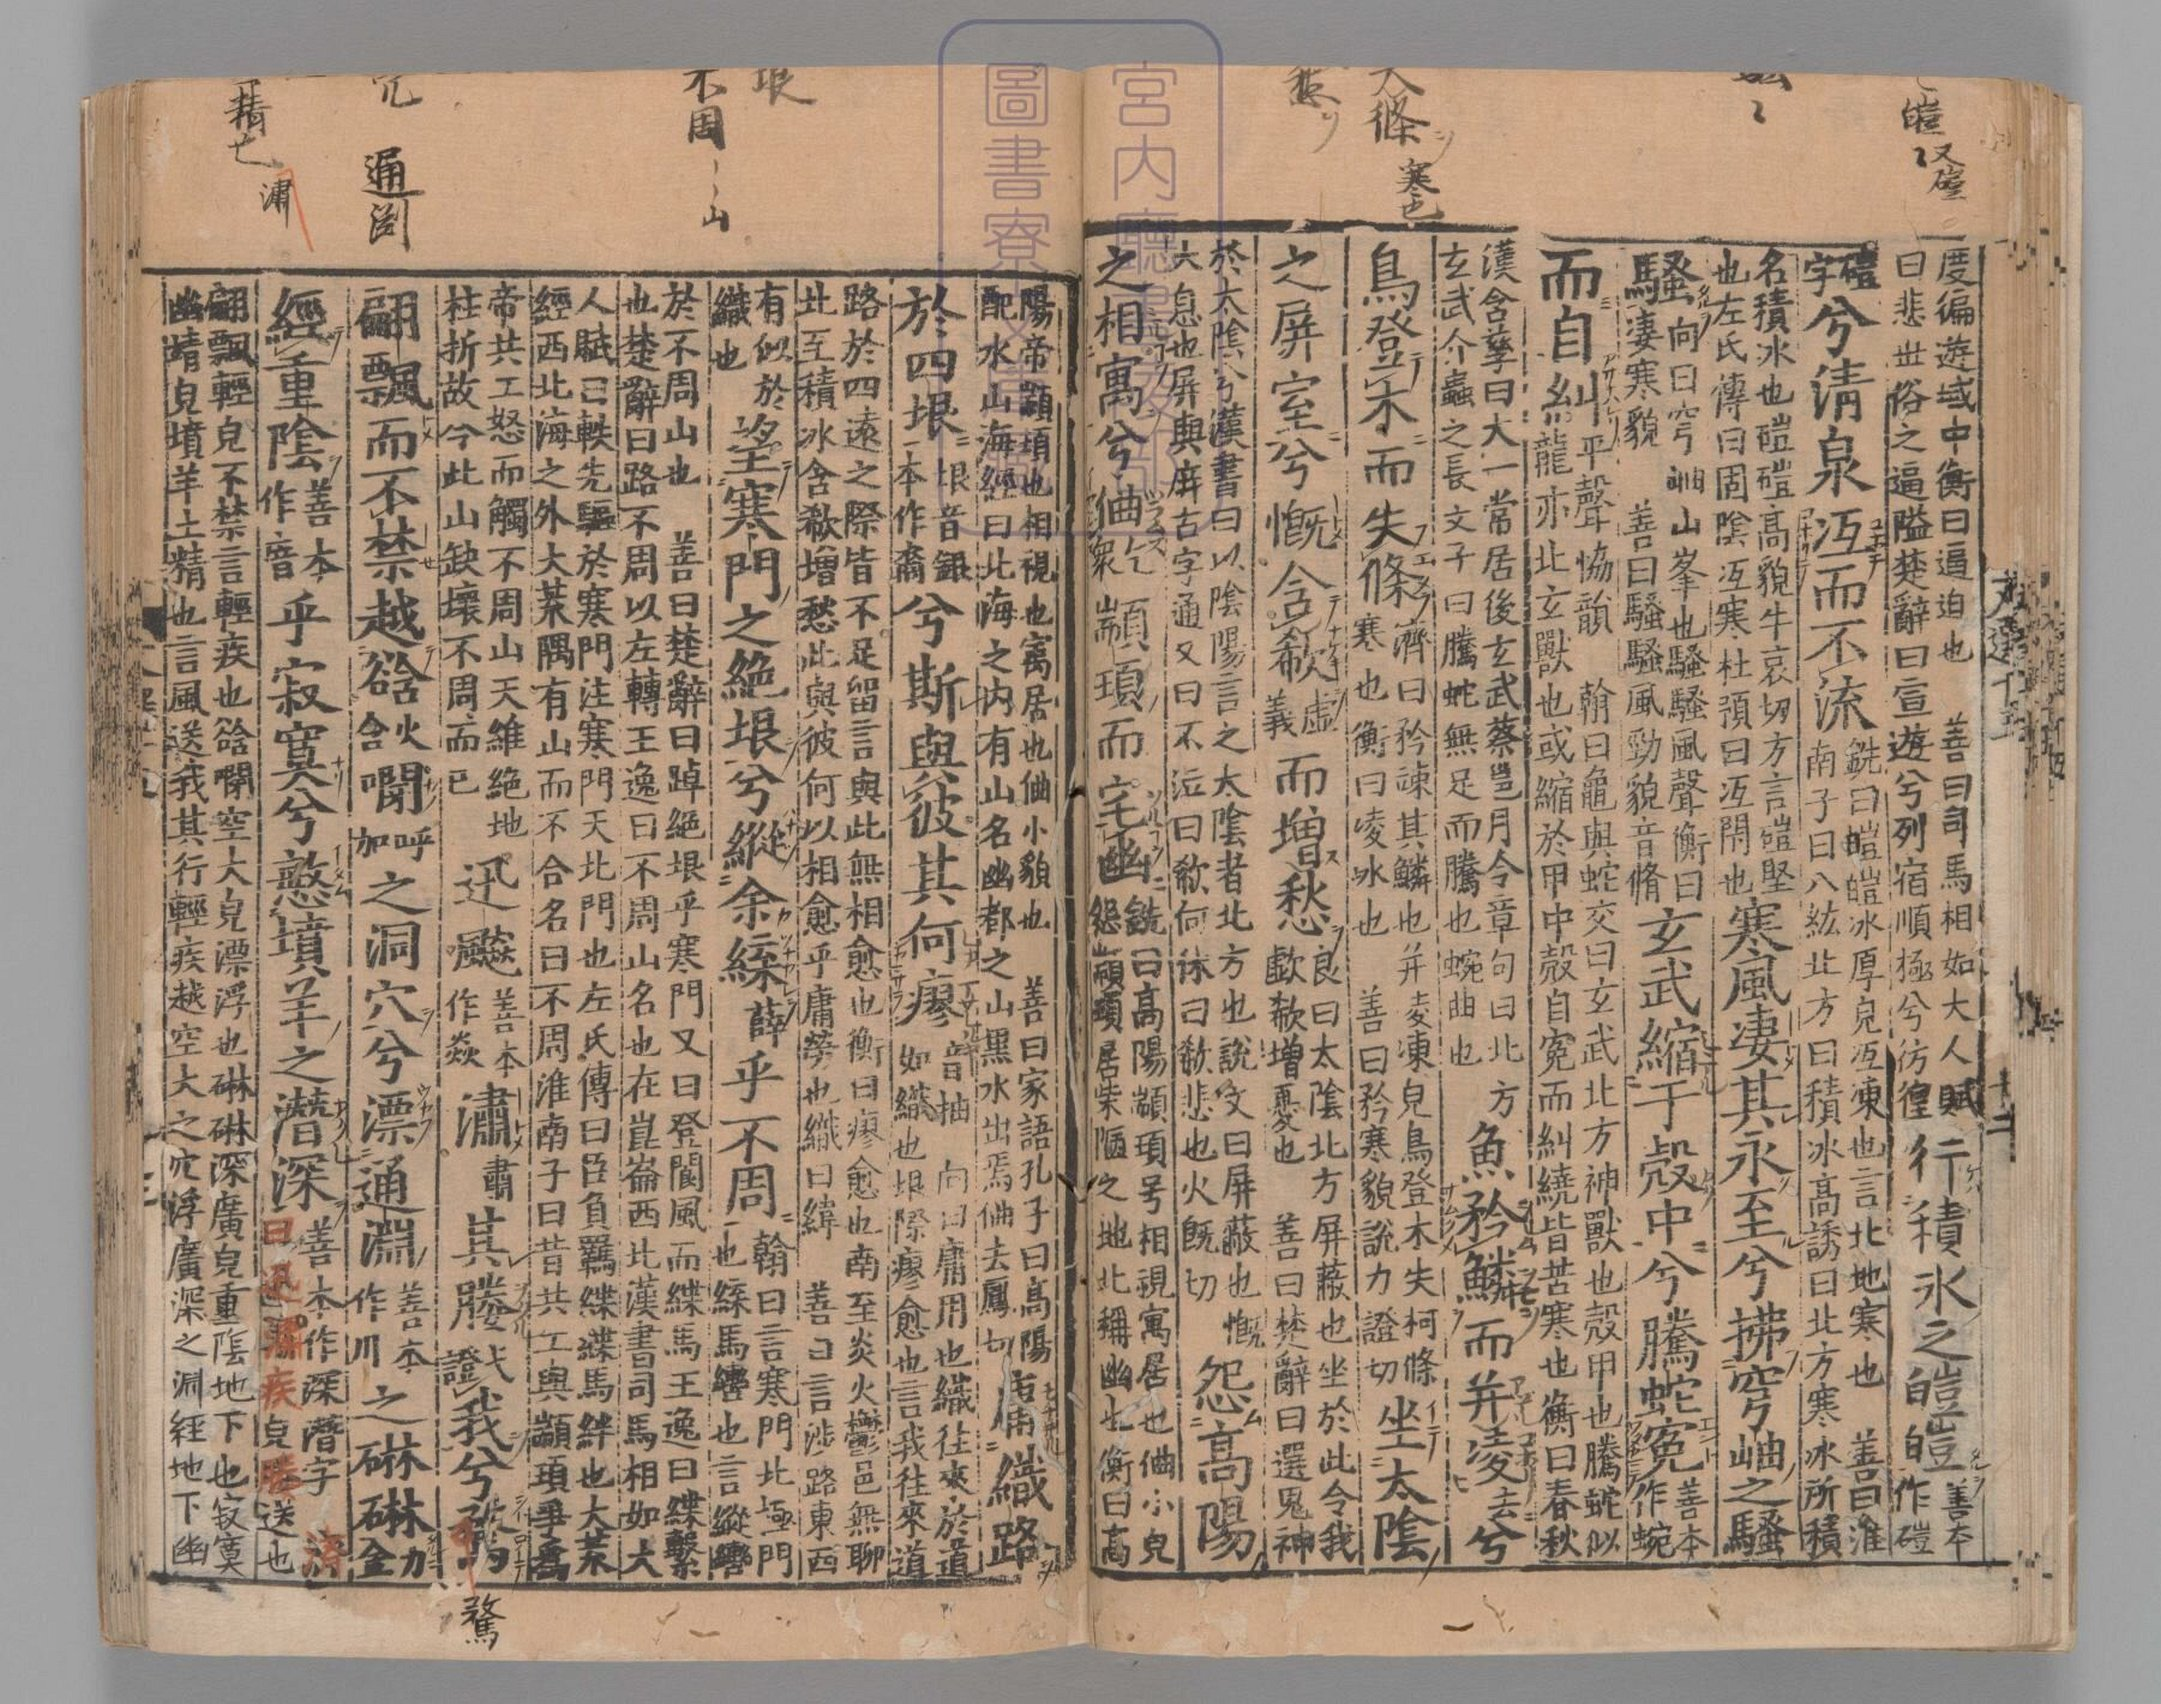 度徧遊域中衡曰逼迫也 善曰司馬相如大人賦
曰悲世俗之逼隘楚辭曰宣遊兮列宿順極兮彷徨
行積氷之皚皚
善本
作磑
磑
字
兮清泉冱而不流
銑曰皚皚冰厚皃冱凍也言北地寒也 善曰淮
南子曰八紘北方曰積冰高誘曰北方寒冰所積
名積冰也磑磑高貌牛哀切方言磑堅
也左氏傳曰固陰冱寒杜預曰冱閉也
寒風凄其永至兮拂穹岫之騷
騷
向曰穹岫山峯也騷騷風聲衡曰
凄寒貌 善曰騷騷風勁貌音脩
玄武縮于殼中兮騰蛇寃
善本
作蜿
而自糾
平聲恊韻 翰曰龜與蛇交曰玄武北方神獸也殼甲也騰蛇似
龍亦北玄獸也或縮於甲中殼自寃而糾繞皆苦寒也衡曰春秋
漢含孳曰大一常居後玄武蔡邕月令章句曰北方
玄武介蟲之長文子曰騰蛇無足而騰也蜿曲也
魚矜鱗而并凌去兮
鳥登木而失條
濟曰矜竦其鱗也并凌凍皃鳥登木失柯條
寒也衡曰凌冰也 善曰矜寒貌說力證切
坐太陰
之屏室兮慨含欷
虛
義
而增愁
良曰太陰北方屏蔽也坐於此令我
歔欷增憂也 善曰楚辭曰選鬼神
於太陰兮漢書曰以陰陽言之太陰者北方也說文曰屏蔽也慨
大息也屏與庰古字通又曰不泣曰欷何休曰欷悲也火旣切
怨高陽
之相寓兮㑋
顓頊而宅幽
銑曰高陽顓頊号相視寓居也㑋小皃
怨顓頊居柴陋之地北稱幽也衡曰高
陽帝顓頊也相視也寓居也㑋小貌也 善曰家語孔子曰高陽
配水山海經曰北海之内有山名幽都之山黑水出焉㑋去鳳切
庸織路
於四垠
垠音銀
一本作裔
兮斯與彼其何瘳
音抽 向曰庸用也織往來於道
如織也垠際瘳愈也言我往來道
路於四遠之際皆不足留言與此無相愈也衡曰瘳愈也南至炎火鬱邑無聊
北至積冰含欷增愁此與彼何以相愈乎庸勞也織曰緯 善曰言涉路東西
有似於
織也
望寒門之絶垠兮縱余緤
薛
乎不周
翰曰言寒門北極門
也緤馬轡也言縱轡
於不周山也 善曰楚辭曰踔絕垠乎寒門又曰登閬風而緤馬王逸曰緤繫
也楚辭曰路不周以左轉王逸曰不周山名也在崑崙西北漢書司馬相如大
人賦曰軼先驅於寒門注寒門天北門也左氏傳曰臣負羈緤緤馬絆也大荒
經西北海之外大荒隅有山而不合名曰不周淮南子曰昔共工與顓頊爭爲
帝共工怒而觸不周山天維絶地
柱折故今此山缺壞不周而已
迅飈
善本
作焱
潚
肅
其媵我兮
翩飄而不禁越谽
火
含
㘎
呼
加
之洞穴兮漂通淵
善本
作川
之碄碄
力
金
經重陰
善本
作瘖
乎寂寞兮愍墳羊之潛深
善本作深潛字
翩飄輕皃不禁言輕疾也谽㘎空大皃漂浮也碄碄深廣皃重陰地下也寂寞
幽靖皃墳羊土精也言風送我其行輕疾越空大之穴浮廣深之淵經地下幽
文選十五
十二
宮内廳
圖書寮
不周
通淵
潚